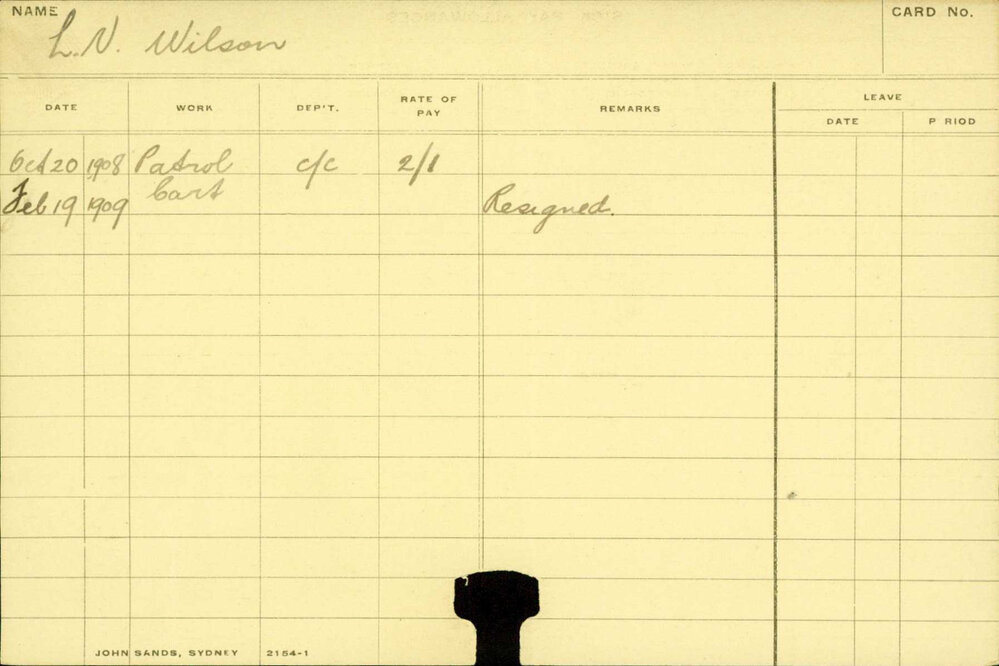 NAME
L. V. Wilson
CARD No.
DATE WORK DEP'T. RATE OF PAY REMARKS LEAVE
DATE P RIOD
Oct 20 1908 Patrol c/c 2/1
Cart
Feb 19 1909 Resigned.
JOHN SANDS, SYDNEY 2154-1